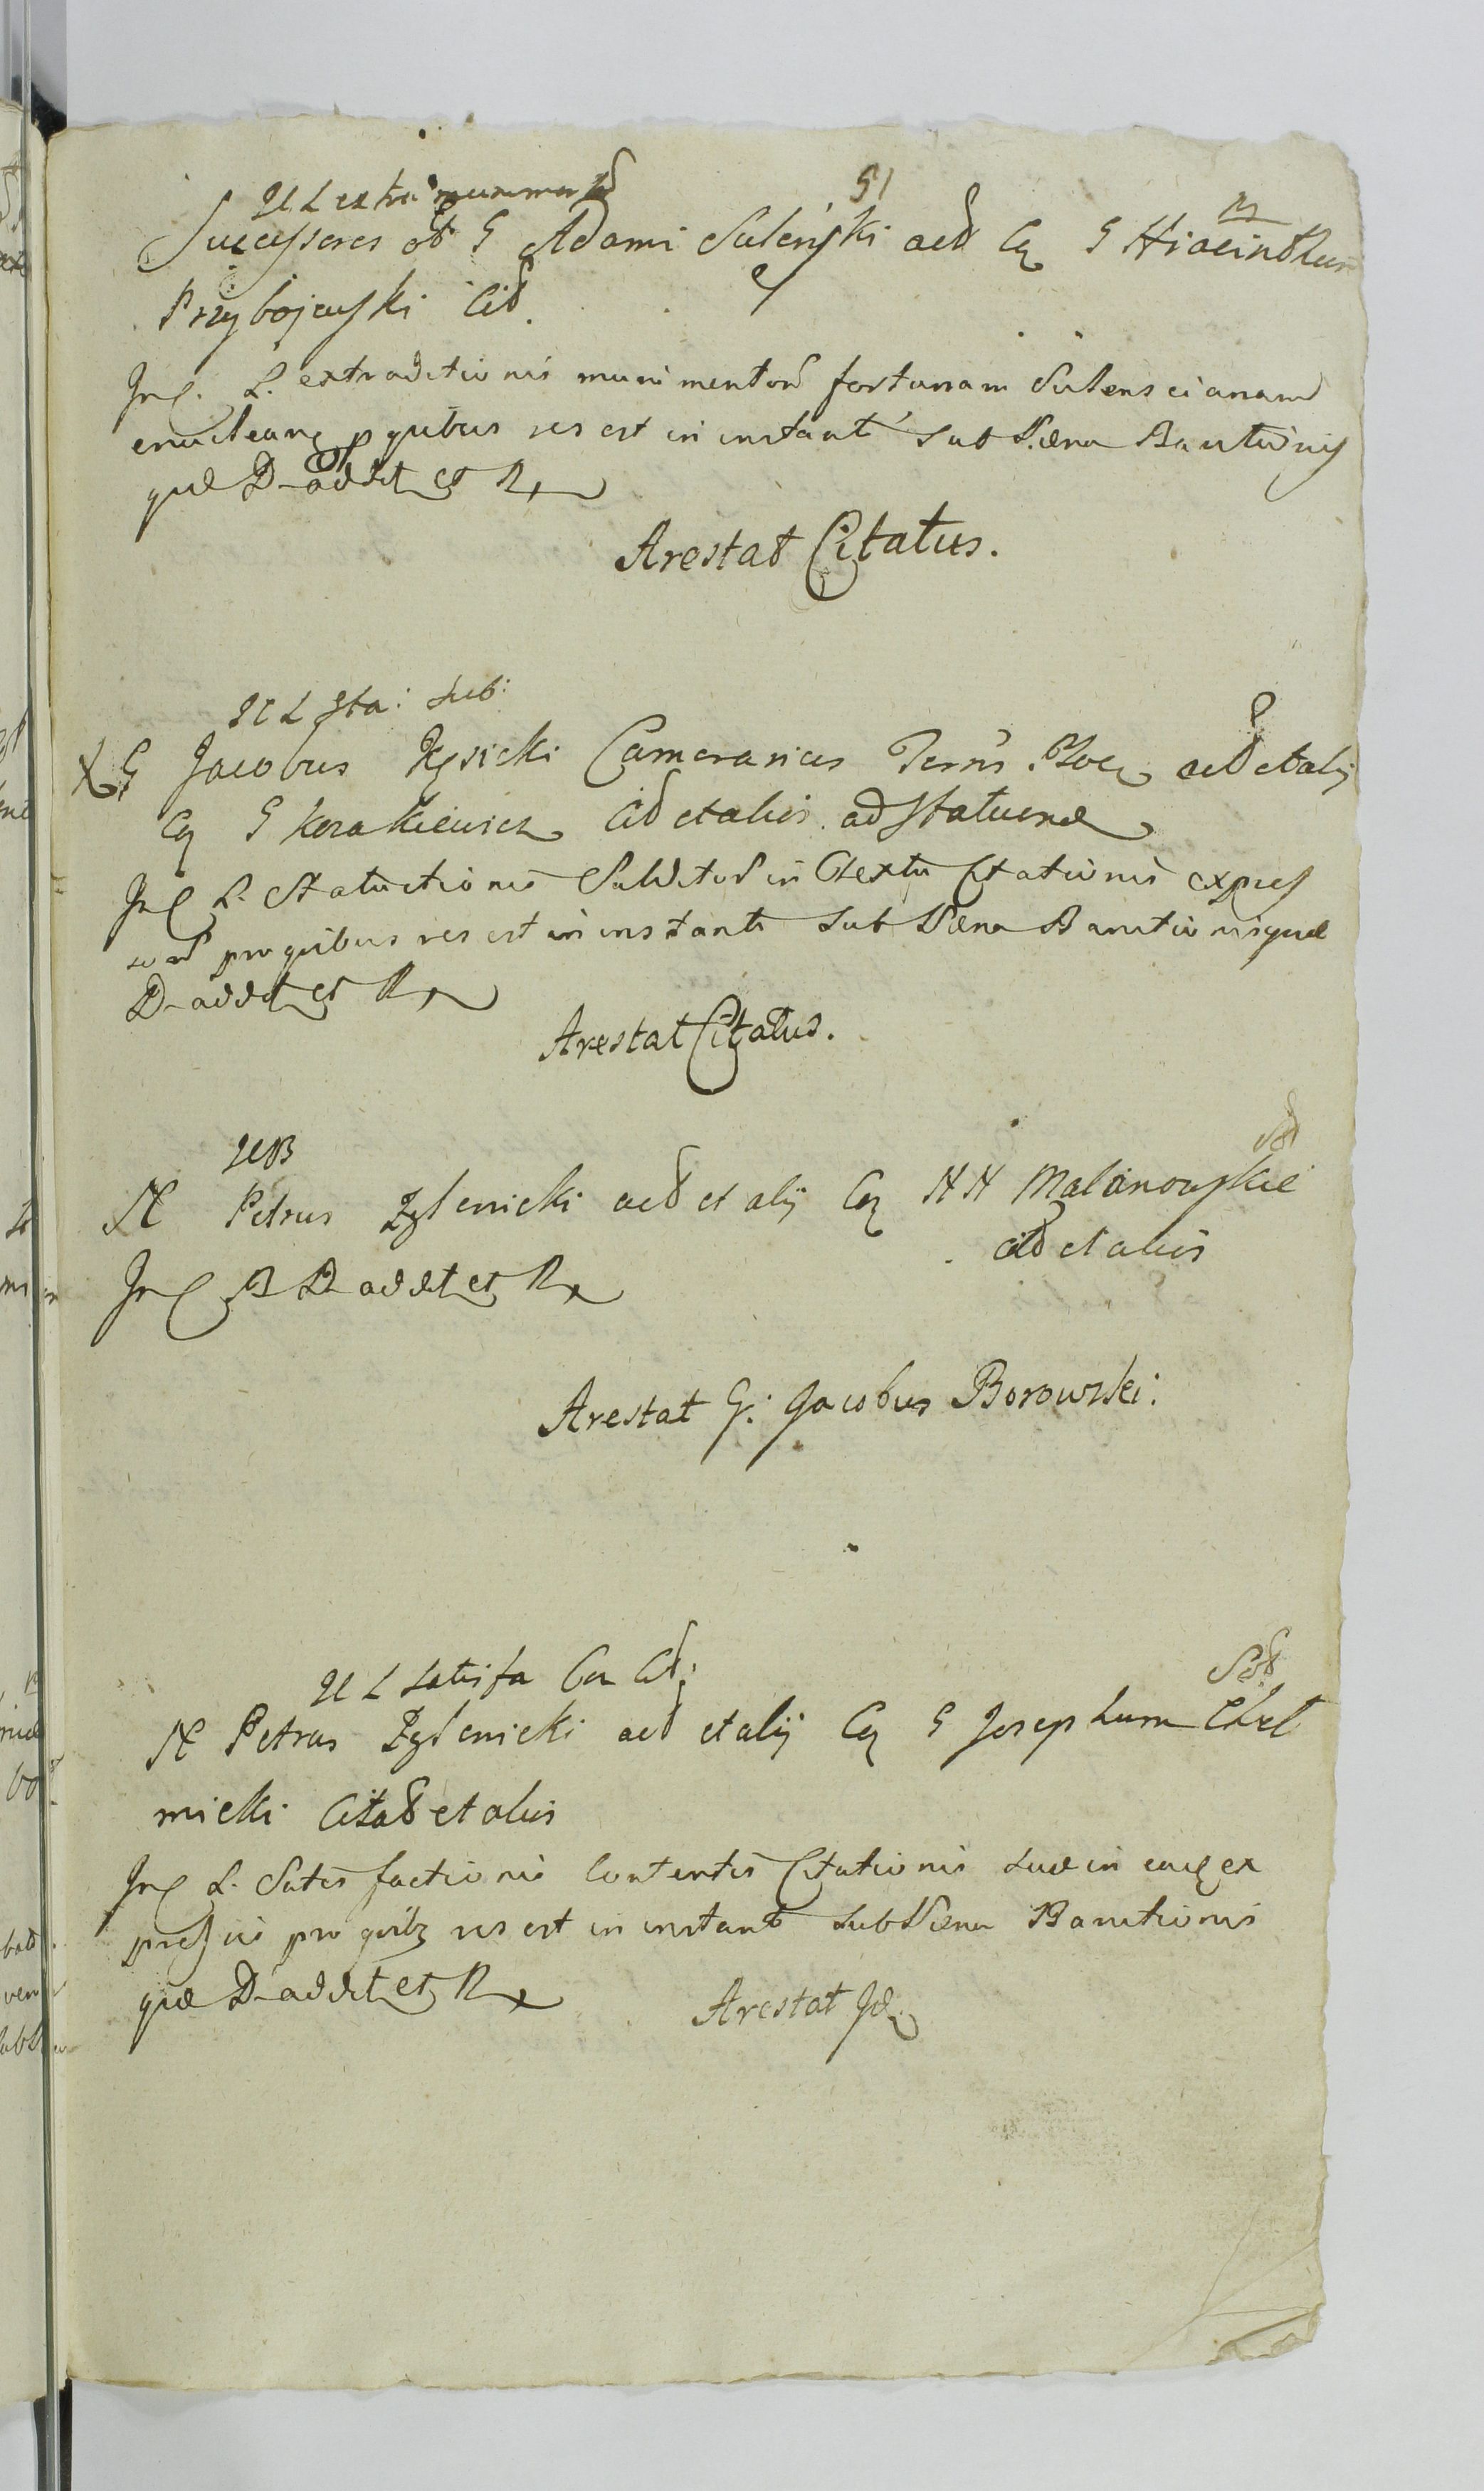 51
L extra munimentor
Successores ol G Adami Suleński act Cq G Hiacinthum
Przybojewski Cit.
L. extraditionis munimentor fortunam Sulenscianam
enucleanq p quibus res est in instanti sub Pæna Banitionis
quæ D addet et R
Arestat Citatus.
L Sta: Sub:
X G Jacobus Kęsicki Camerarius Terris Ploc act et alij
Cq G Korakiewicz Cit et aliis ad Statuend
L. Statuitionis Subditor in Citationis expres
sor pro quibus res est in instanti sub Pæna Banitionis quæ
D addet et R
Arestat Citatus.
N Petrus Zglenicki act et alij Cq NN Malanowskie
cit et aliis
B D addet et R
Arestat G: Jacobus Borowski.
L satisfa Con Cit:
N Petrus Zglenicki act et alij Cq G Josephum Cheł
micki Citat et aliis
L. Satisfactionis Contentis Citationis suæ in eaq ex
pressis pro quibq res est in instanti sub Pæna Banitionis
quæ D addet et R
Arestat Id